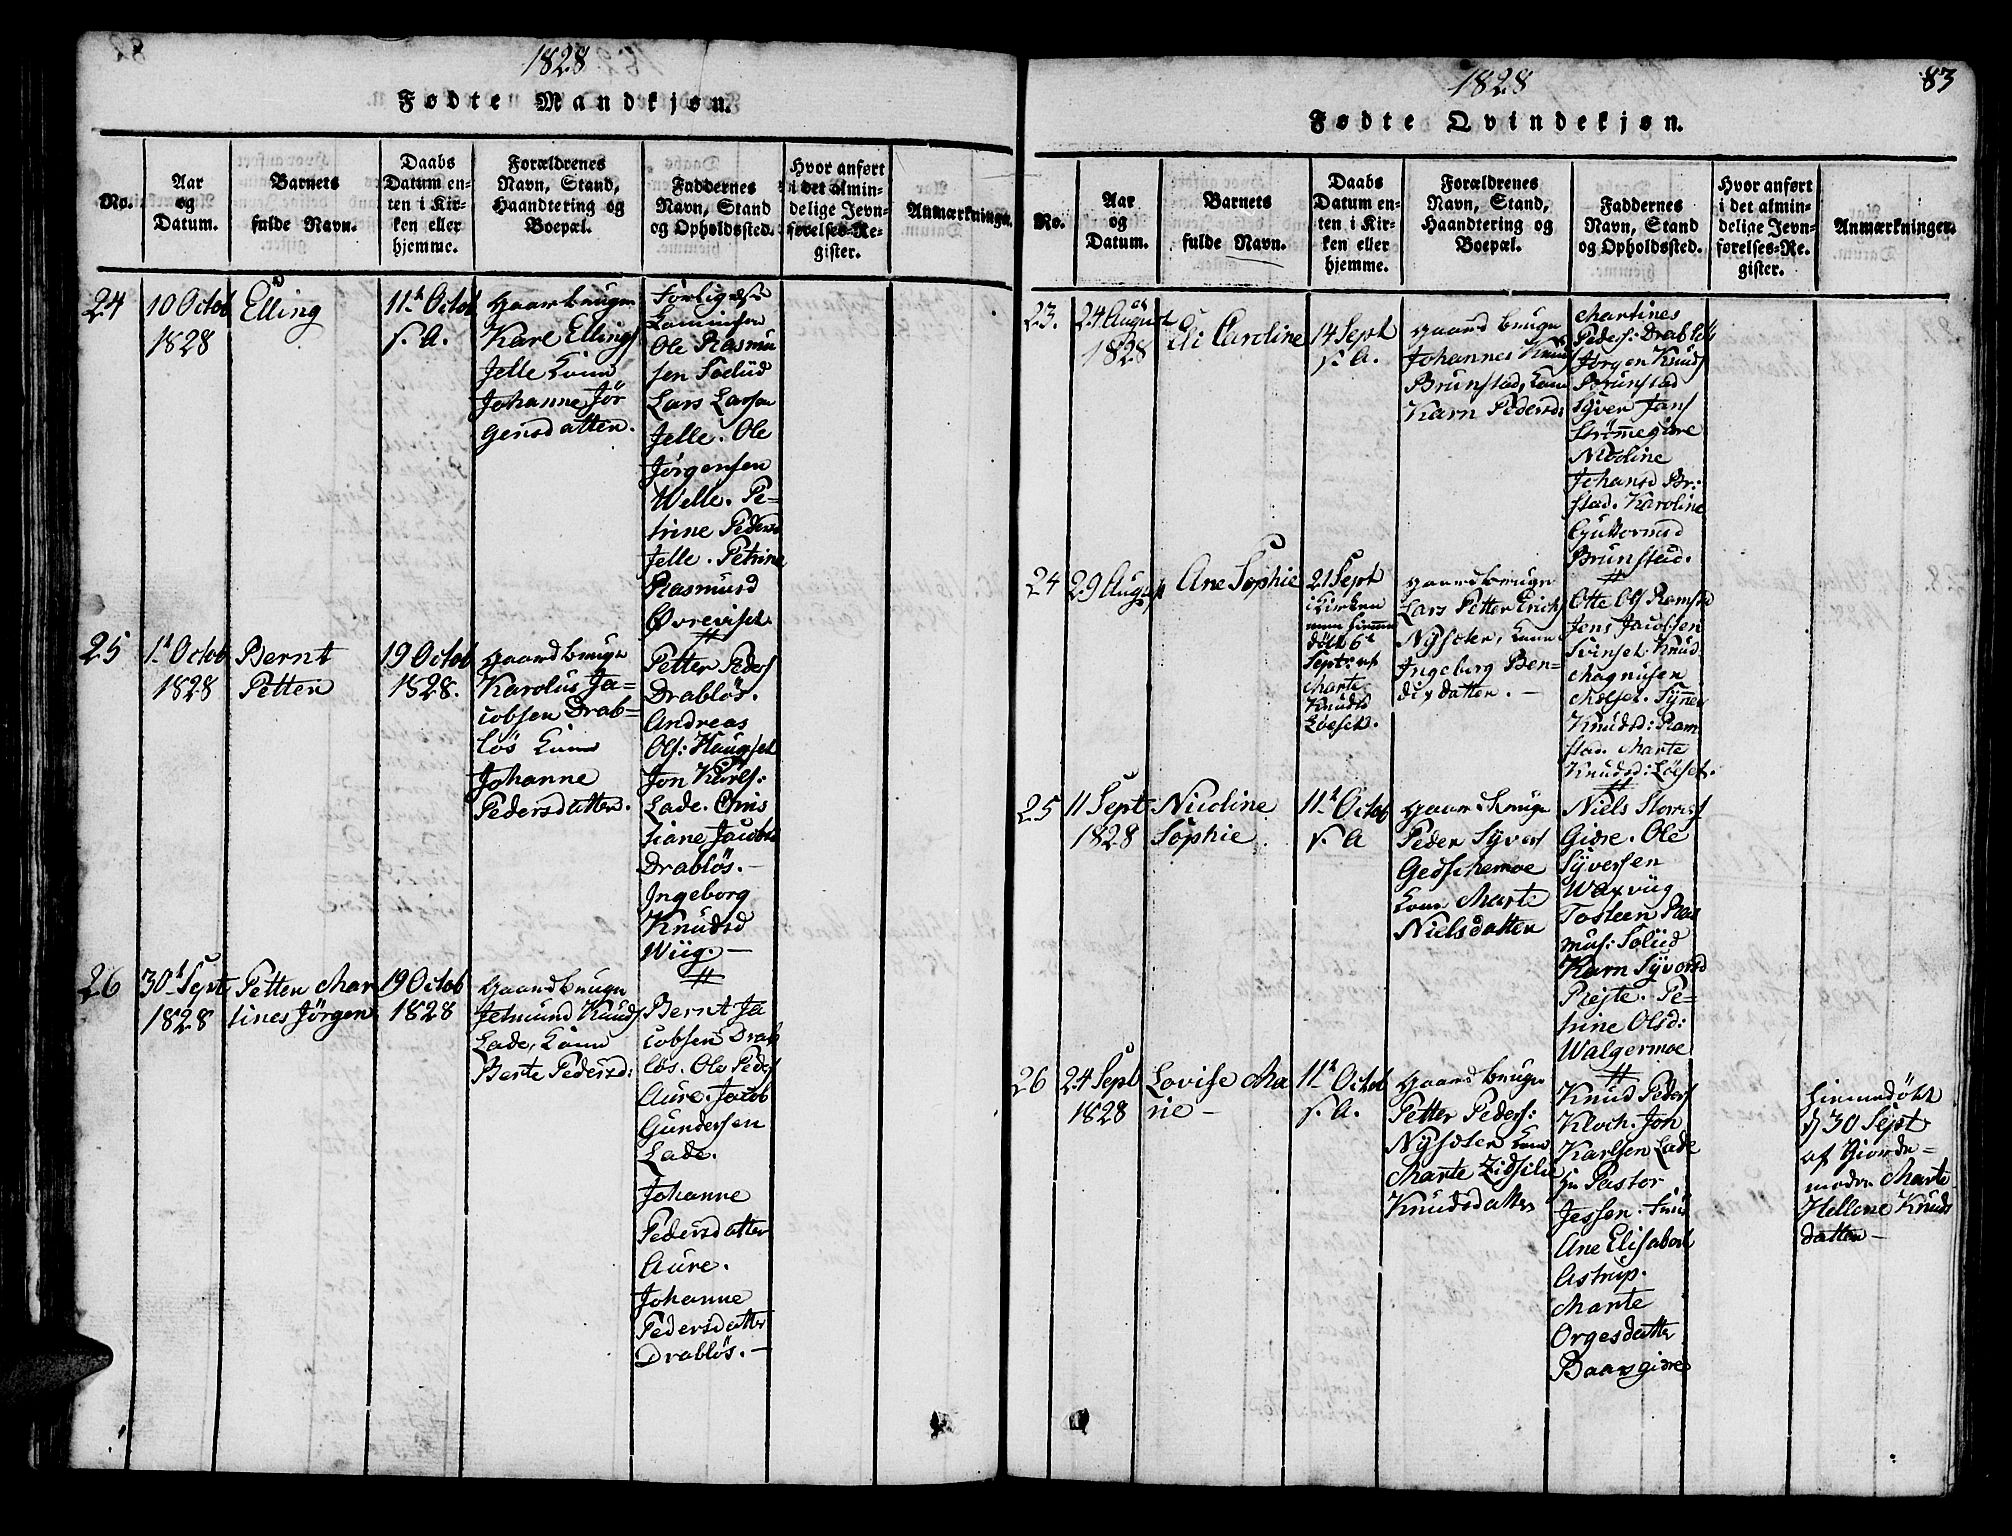 1828
Fødte Mandkjøn.
No.
Aar
og
Datum.
Barnets
fulde Navn.
Daabs
Datum en-
ten i Kir-
ken eller
hjemme.
Forældrenes
Navn, Stand,
Haandtering og
Boepæl.
Faddernes
Navn, Stand
og Opholdssted.
Hvor anført
i det almin-
delige Jevn-
førelses-Re-
gister.
Anmærkninger.
24
10 Octob
1828
Elling
11t Octob
s. A.
Gaardbruger
Karl Ellings
Jelle Kone
Johanne Jör
gensdatter.
Ole Rasmu
sen
Lars Larsen
Jelle. Ole
Jørgensen
Welle. Pe-
trine Pedersd
Jelle. Petrine
Rasmusd
25
1t Octob
1828
Bernt
Petter
19 Octob
1828.
Gaardbruger
Karolus Ja-
cobsen Drab-
lös Kone
Johanne
Pedersdatter.
Petter Peders
Drablös.
Andreas
Ols: Haugset
Jon Karls:
Lade. Chris
tiane Jacobsd
Drablös. -
Ingeborg
Knudsd
Wiig. -
26
30t Sept
1828
Petter Mar
tines Jörgen
19 Octob
1828
Gaardbruger
Jetmund Knuds
Lade, Kone
Berte Pedersd:
Bernt Ja
cobsen Drab
lös. Ole Peders
Aure. Jacob
Gundersen
Lade.
Johanne
Pedersdatter
Aure.
Johanne
Pedersdatter
Drablös. -
83
1828
Fødte Qvindekjøn.
No.
Aar
og
Datum.
Barnets
fulde Navn.
Daabs
Datum en-
ten i Kir-
ken eller
hjemme.
Forældrenes
Navn, Stand,
Haandtering og
Boepæl.
Faddernes
Navn, Stand
og Opholdssted.
Hvor anført
i det almin-
delige Jevn-
førelses-Re-
gister.
Anmærkninger.
23.
24 August
1828
Eli Caroline
14 Sept
s. A.
Gaardbruger
Johannes Knuds
Brunstad, Kone
Karn Pedersd:
Martines
Peders: Drablös
Jörgen Knuds
Brunstad
Syver Jans
Strömmegjære
Nicoline
Johansd Br:
stad. Karoline
Guttormsd
Brunstad.
24
29 August
Ane Sophie
21 Sept
i Kirken
men hjemme
döbt 6t
Sept: af
Marte
Knudsd
Löeset.
Gaardbruger
Lars Petter Erichs
Nysæter, Kone
Ingeborg Ben-
dixdatter. -
Otte Ols Ramstad
Jens Jacobsen
Svinset. Knud
Magnusen
Knudsd: Ram
stad. Marte
Knudsd: Löeset.
25
11 Sept
1828
Nicoline
Sophie
11t Octob
s. A
Gaardbruger
Peder Syvers
Gedschemoe
Kone Marte
Nielsdatter
Ole
Syversen
Ras
mus:
Karn Syversd
Pe-
trine Olsd:
Walgermoe
26
24 Sept
1828
Lovise Ma
rie -
11t Octob
s. A.
Gaardbruger
Petter Peders:
Nysæter Kone
Marte Zidselie
Knudsdatter
Knud Peders
Kloch. Jon
Karlsen Lade
Hr Pastor
Jessen. Frue
Ane Elisabeth
Astrup.
Marte
Orgesdatter
hiemmedöbt
d 30 Sept
af Giorde-
moder Marte
Hellene Knuds
datter -